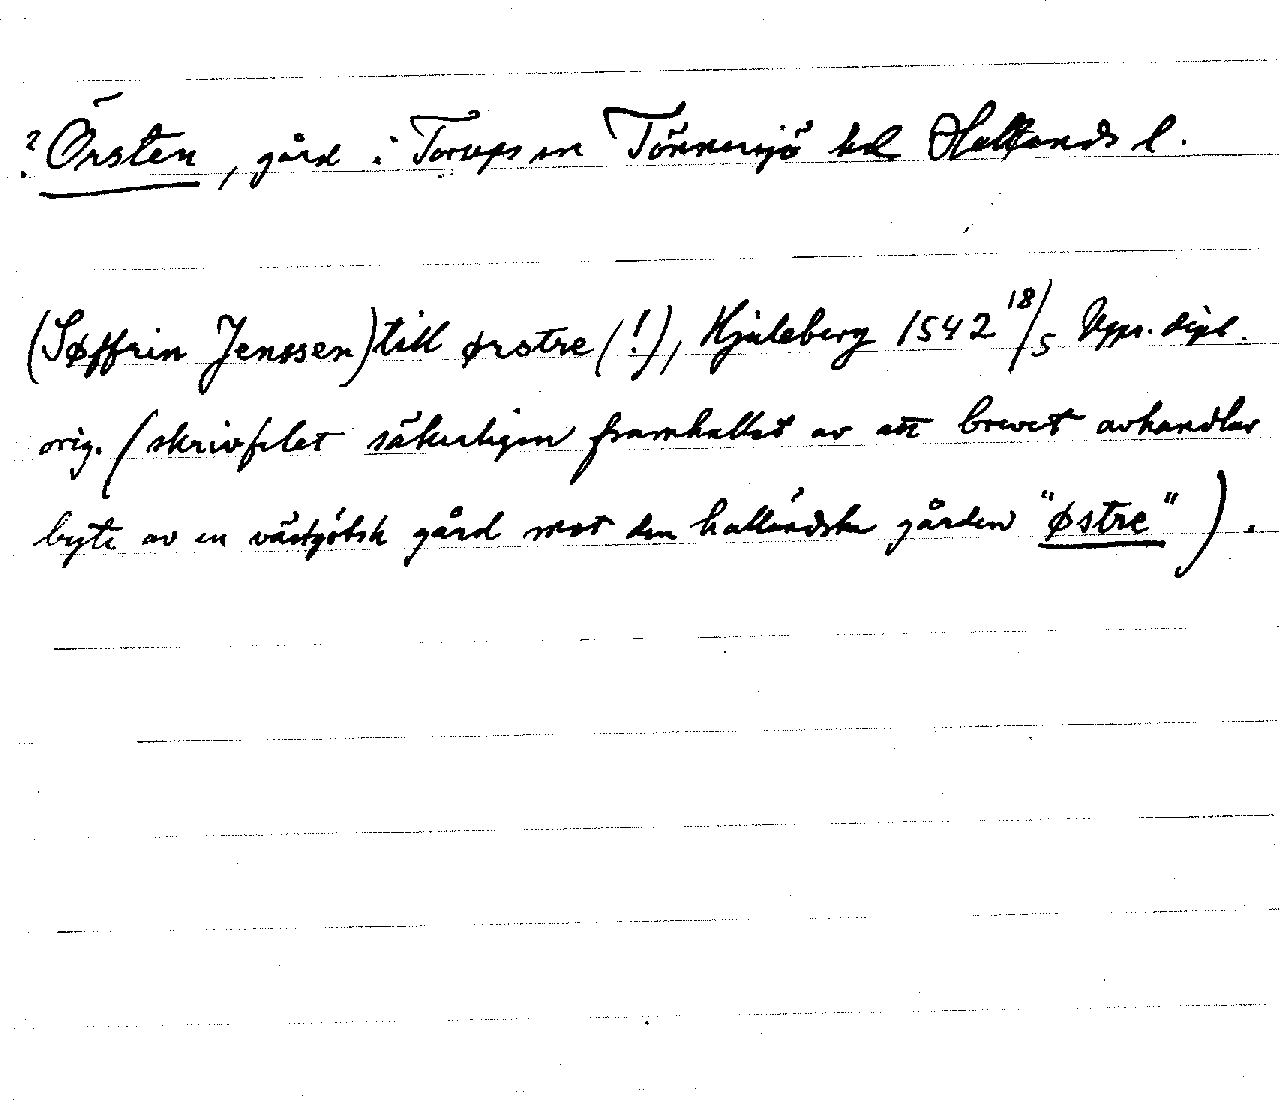 ? Örsten, gård i Torups sn Tönnersjö hd Hallands l.
(Søffrin Jenssen) till ørstre (!), Hjuleberg 1542 18/5 Upps. dipl.
orig. (skrivfelet säkerligen framkallat av att brevet avhandlar
byte av en västgötsk gård mot den halländska gården "østre").